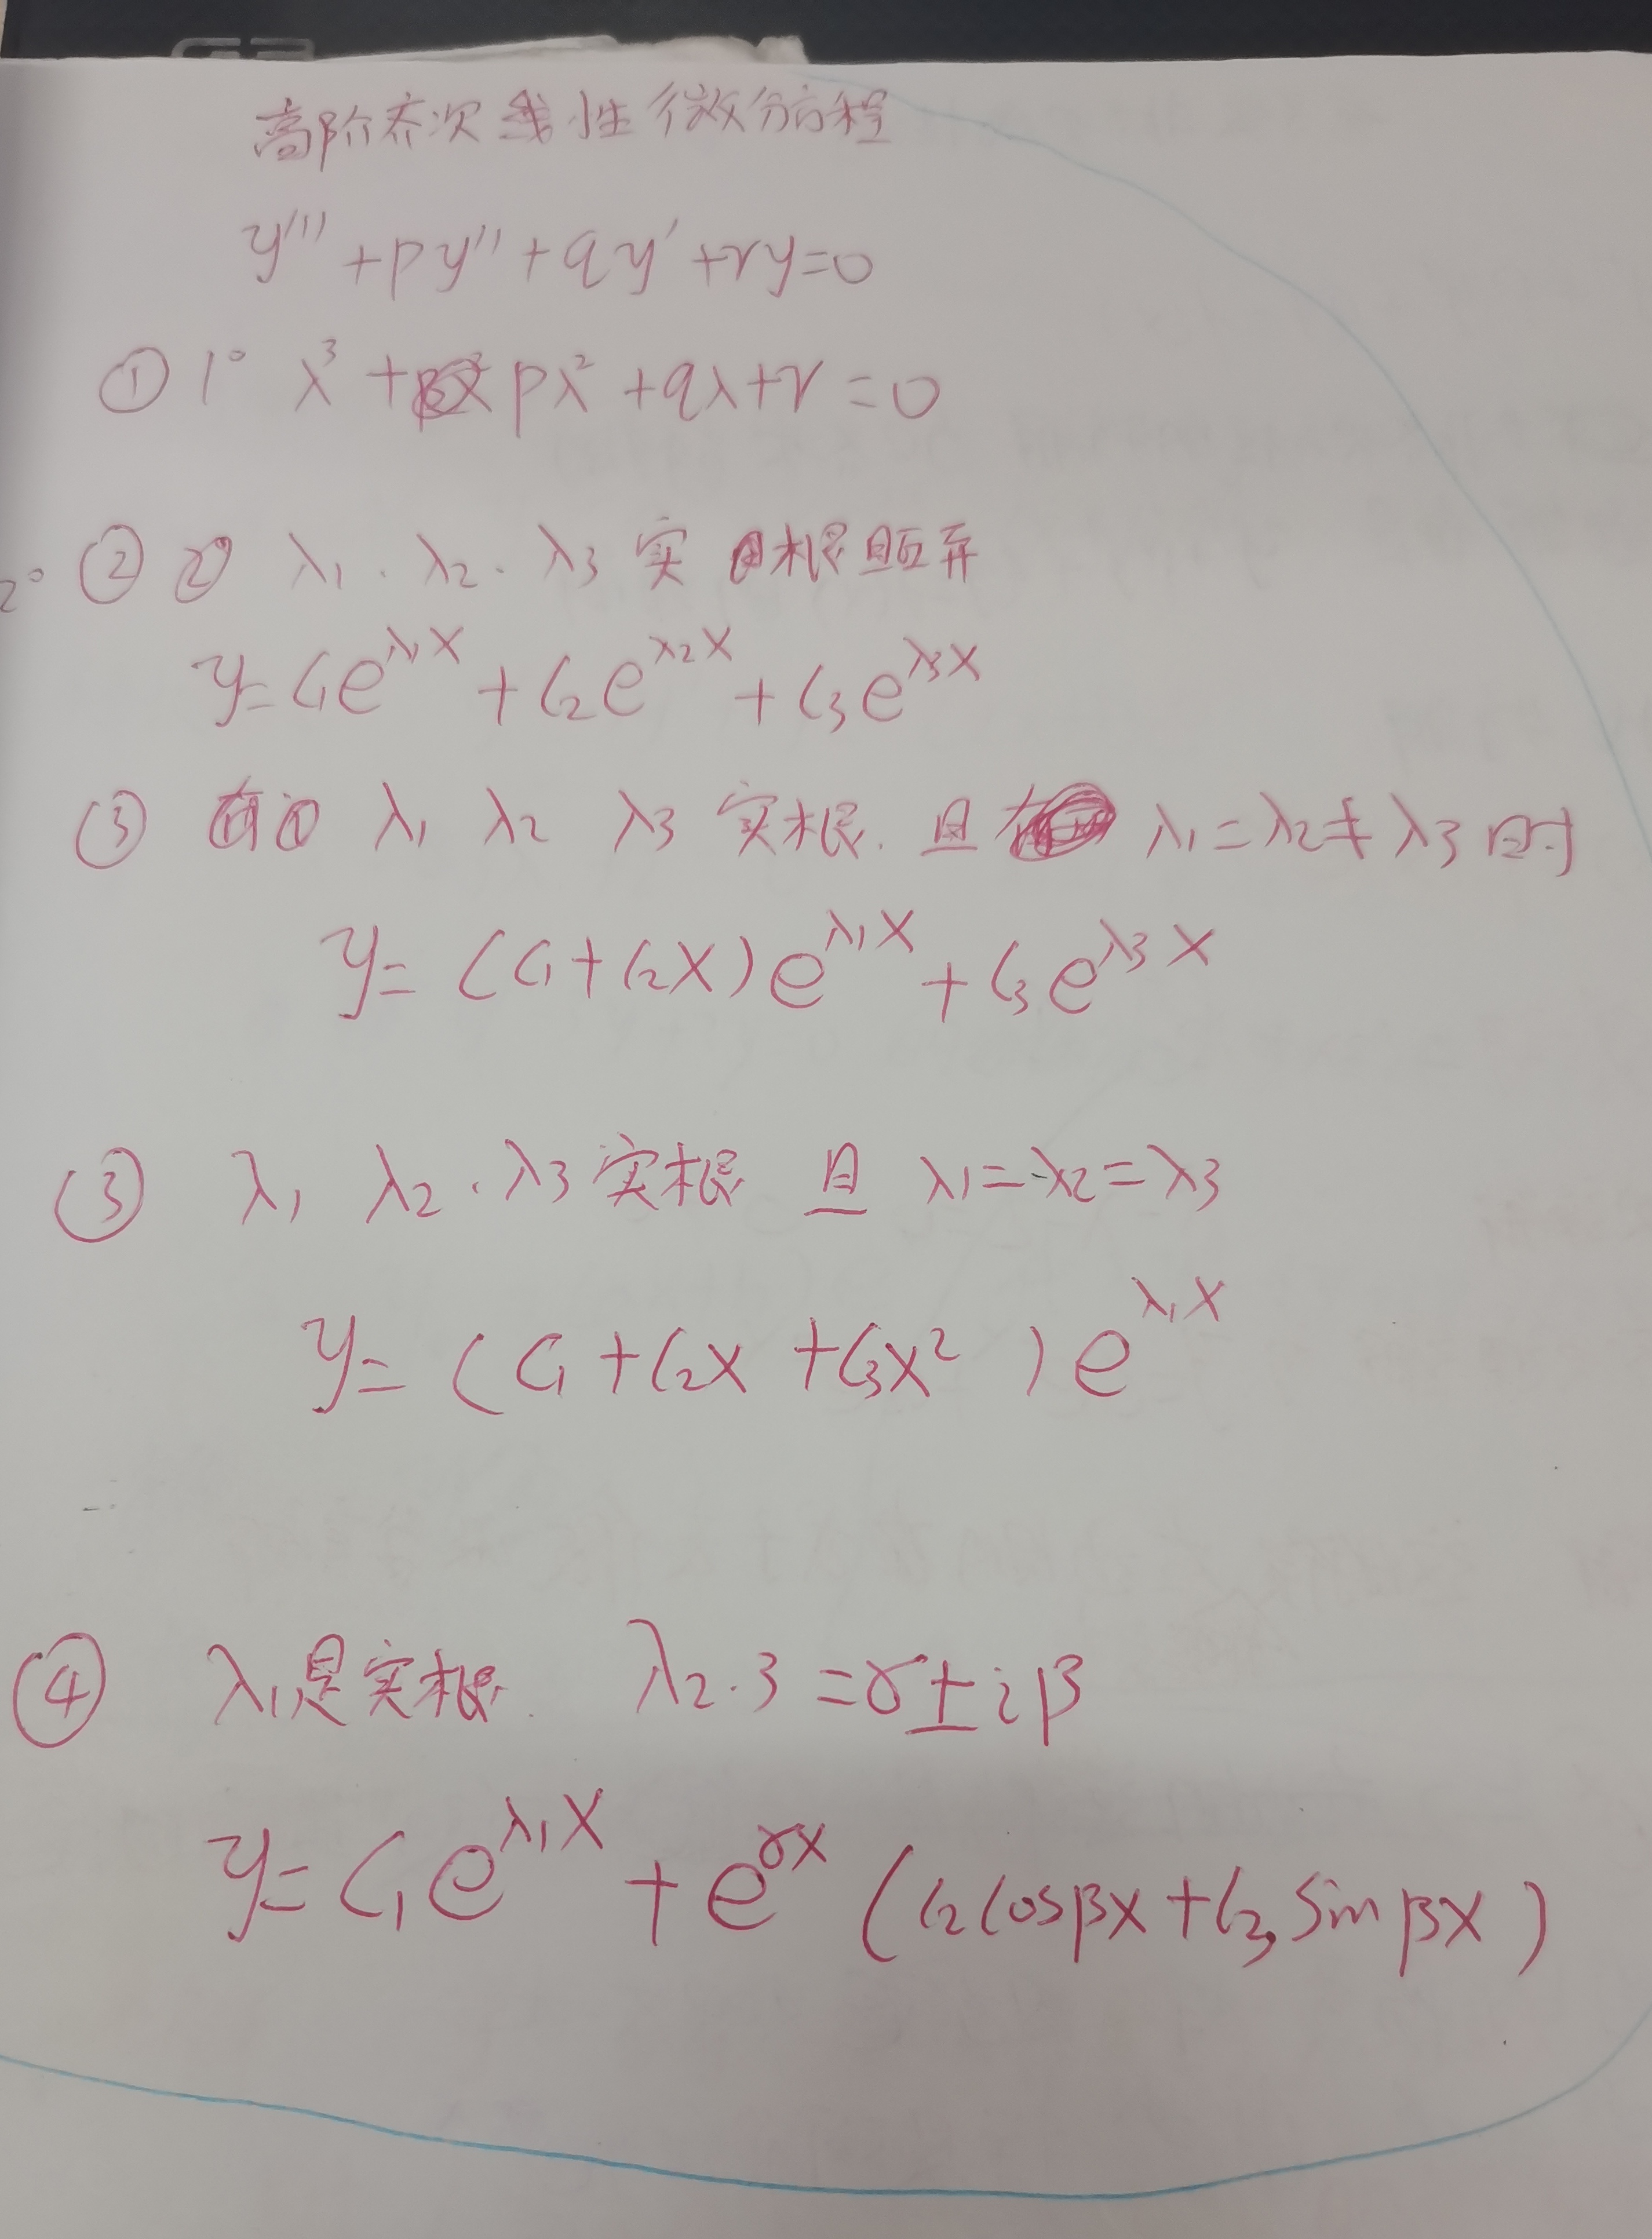 高阶齐次线性微分方程
y''' + py'' + qy' + ry = 0
① 1° λ³ + pλ² + qλ + r = 0
2° ② λ1 . λ2 . λ3 实根且互异
y = C1e^{λ1x} + C2e^{λ2x} + C3e^{λ3x}
③ λ1 λ2 λ3 实根. 且 λ1 = λ2 ≠ λ3 时
y = (C1 + C2x)e^{λ1x} + C3e^{λ3x}
③ λ1 λ2 . λ3 实根 且 λ1 = λ2 = λ3
y = (C1 + C2x + C3x²)e^{λ1x}
④ λ1是实根. λ2.3 = γ ± iβ
y = C1e^{λ1x} + e^{γx}(C2cosβx + C3sinβx)